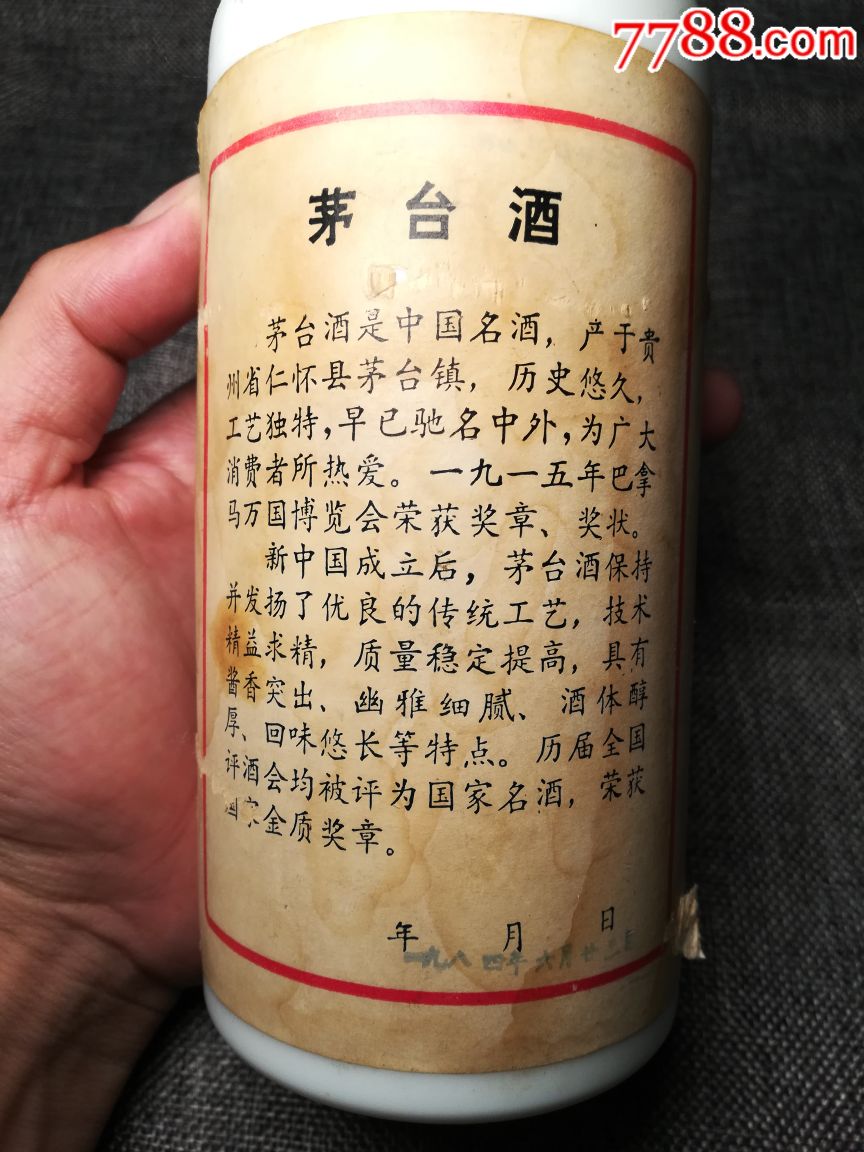 7788.com
茅台酒
茅台酒是中国名酒，产于贵
州省仁怀县茅台镇，历史悠久，
工艺独特，早已驰名中外，为广大
消费者所热爱。一九一五年巴拿
马万国博览会荣获奖章、奖状。
新中国成立后，茅台酒保持
并发扬了优良的传统工艺，技术
精益求精，质量稳定提高，具有
酱香突出、幽雅细腻、酒体醇
厚、回味悠长等特点。历届全国
评酒会均被评为国家名酒，荣获
国家金质奖章。
年 月 日
一九八四年六月廿三日